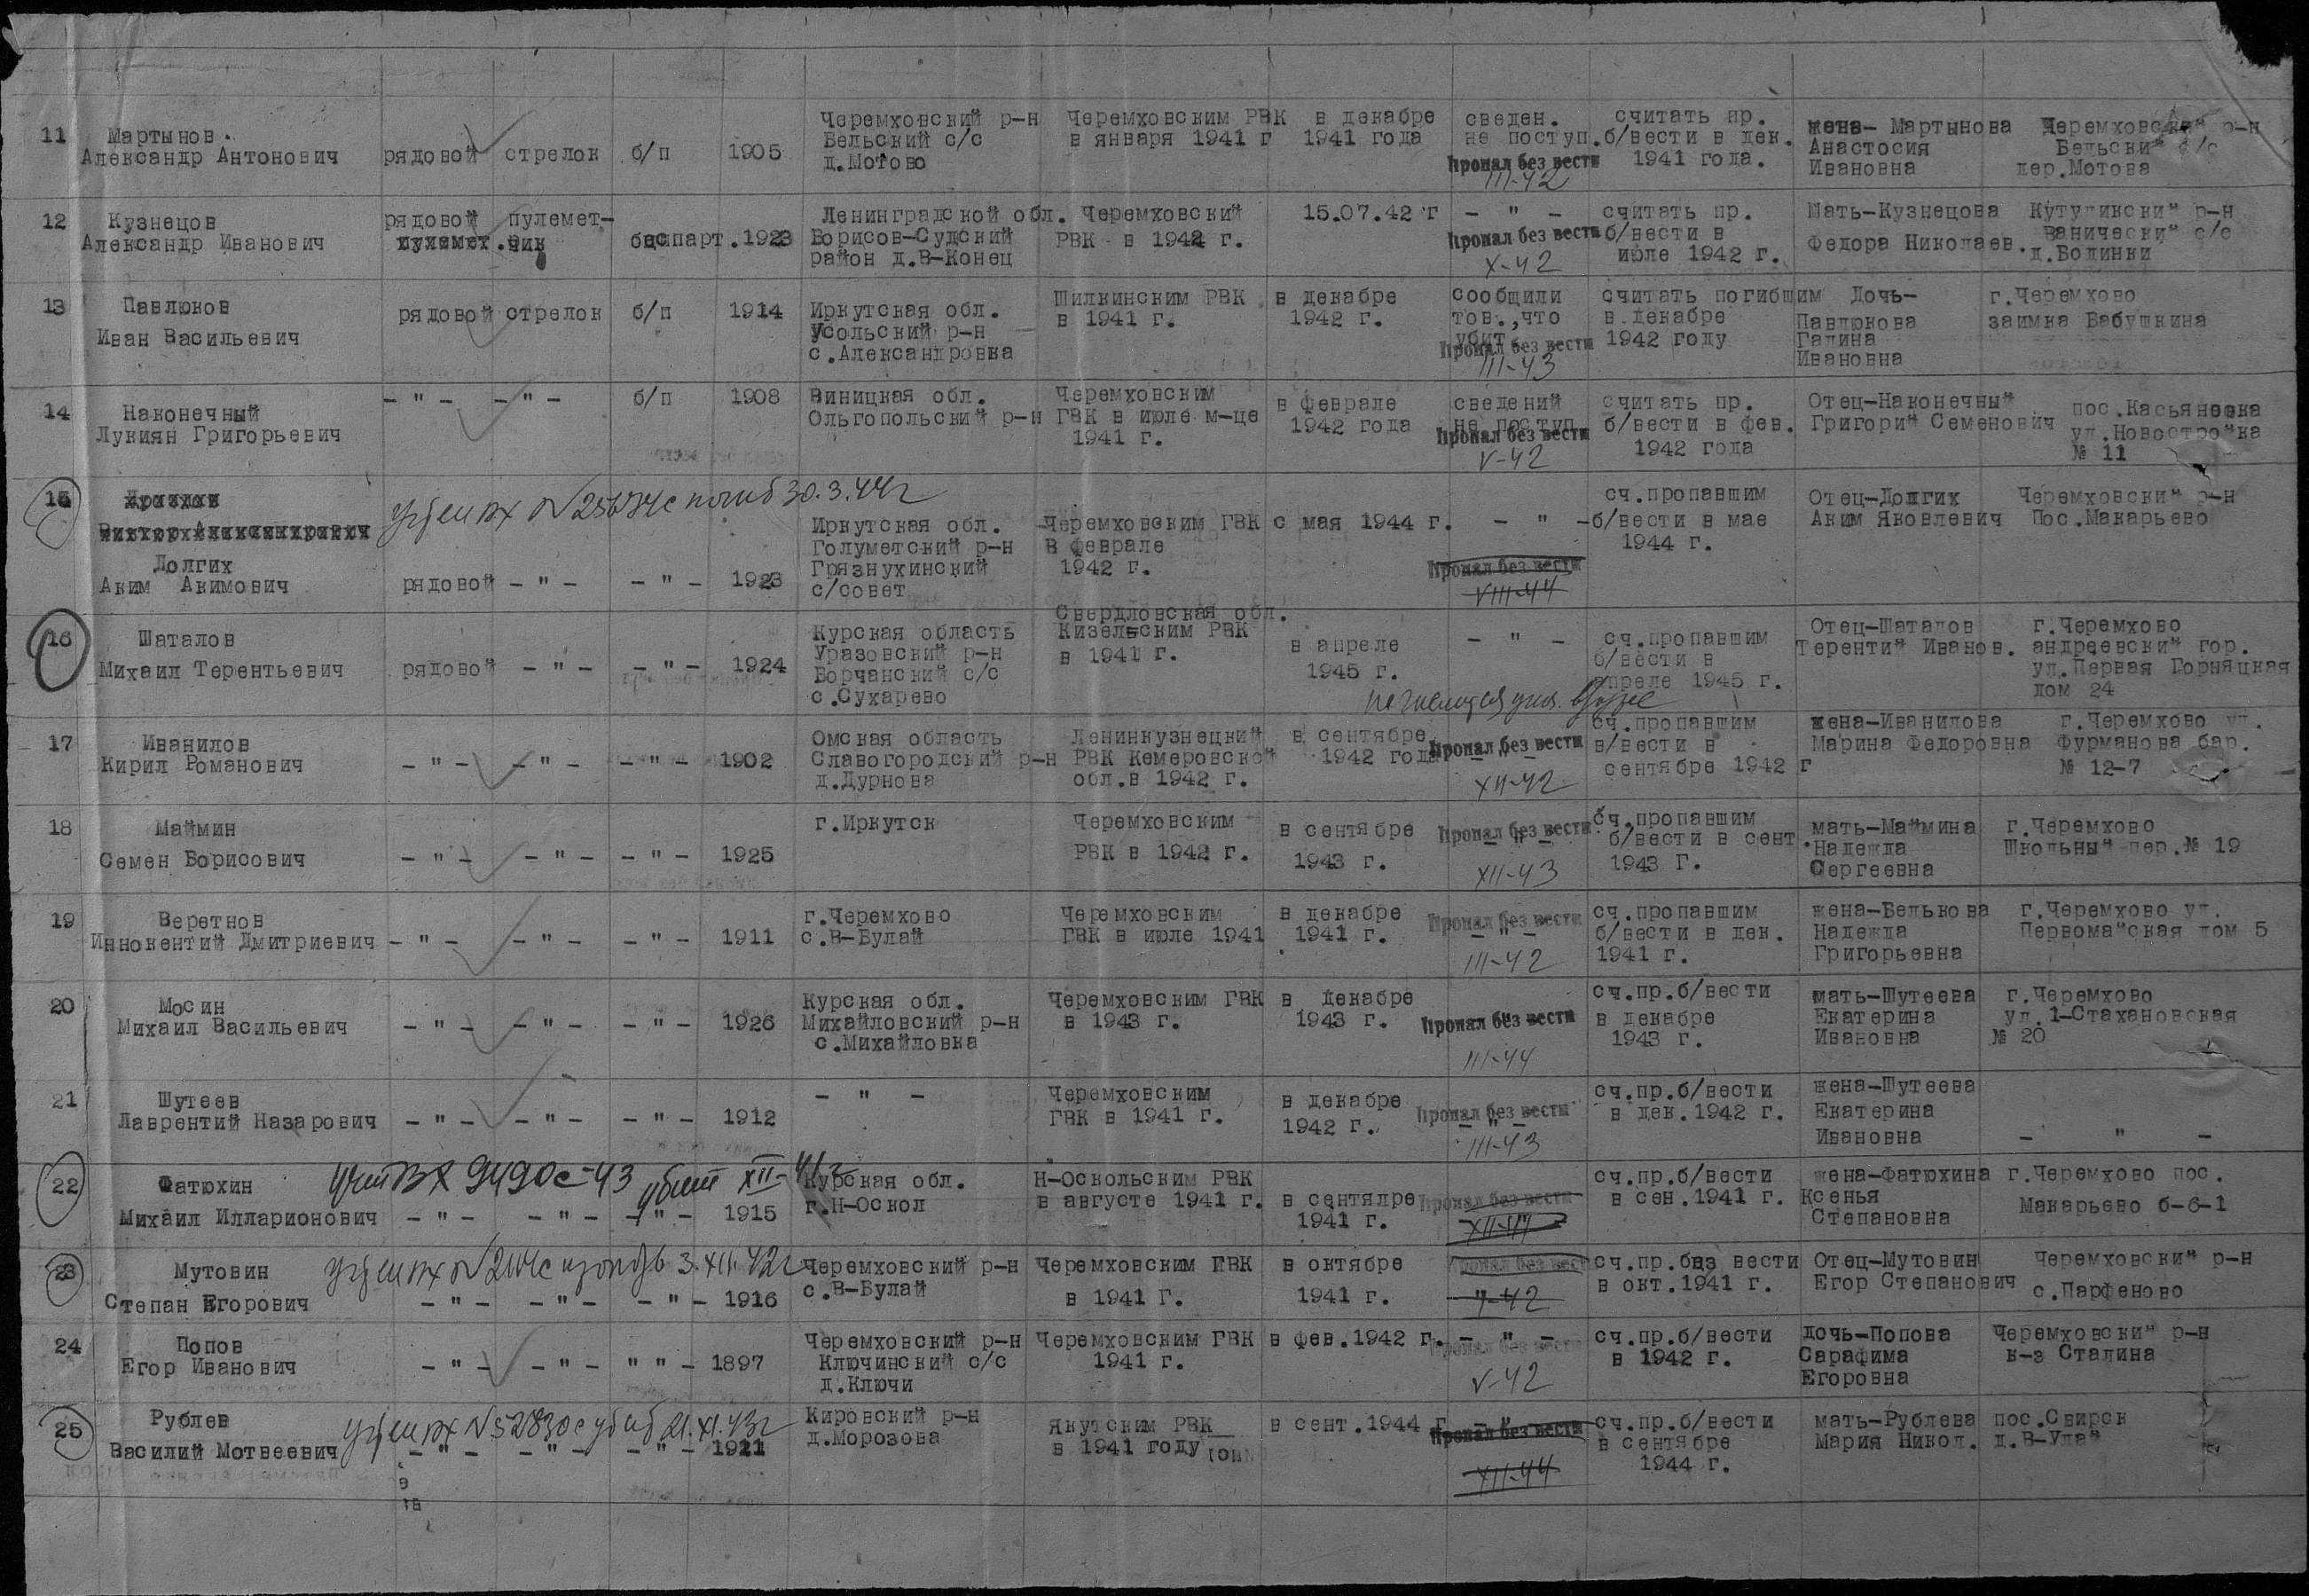 11
Мартынов.
Александр Антонович
рядовой стрелок б/п 1905
Черемховский р-н
Бельский с/с
д.Мотово
Черемховским РВК
в января 1941 г
в декабре
1941 года
сведен.
не поступ.
Пропал без вести
III-42
считать пр.
б/вести в дек.
1941 года.
жена- Мартынова
Анастосия
Ивановна
Черемховски" р-н
Бельски" с/с
дер.Мотова
12
Кузнецов
Александр Иванович
рядовой пулемет-
чик
беспарт. 1923
Ленинградской обл.
Борисов-Судский
район д.В-Конец
Черемховский
РВК в 1942 г.
15.07.42 г
- " -
Пропал без вести
X-42
считать пр.
б/вести в
июле 1942 г.
Мать-Кузнецова
Федора Николаев.
Кутуликски" р-н
Ванически" с/с
д.Водинки
13
Павлюков
Иван Васильевич
рядовой стрелок б/п 1914
Иркутская обл.
Усольский р-н
с.Александровка
Шилкинским РВК
в 1941 г.
в декабре
1942 г.
сообщили
тов.,что
убит
Пропал без вести
III-43
считать погибшим
в декабре
1942 году
Дочь-
Павлюкова
Галина
Ивановна
г.Черемхово
заимка Бабушкина
14
Наконечный
Лукиян Григорьевич
- " - - " - б/п 1908
Виницкая обл.
Ольгопольский р-н
Черемховским
ГВК в июле м-це
1941 г.
в феврале
1942 года
сведений
не поступ.
Пропал без вести
V-42
считать пр.
б/вести в фев.
1942 года
Отец-Наконечны"
Григори" Семенович
пос.Касьяновка
ул.Новостро"ка
№ 11
15
Долгих
Аким Акимович
погиб 30.3.44г
рядовой - " - - " - 1923
Иркутская обл.
Голуметский р-н
Грязнухинский
с/совет
Черемховским ГВК
в феврале
1942 г.
с мая 1944 г.
- " -
Пропал без вести
VIII-44
сч.пропавшим
б/вести в мае
1944 г.
Отец-Долгих
Аким Яковлевич
Черемховски" р-н
Пос.Макарьево
16
Шаталов
Михаил Терентьевич
рядовой - " - - " - 1924
Курская область
Уразовский р-н
Борчанский с/с
с.Сухарево
Свердловская обл.
Кизелвским РВК
в 1941 г.
в апреле
1945 г.
- " -
сч.пропавшим
б/вести в
апреле 1945 г.
Отец-Шаталов
Теренти" Иванов.
г.Черемхово
андреевски" гор.
ул.Первая Горняцкая
дом 24
17
Иванилов
Кирил Романович
- " - - " - - " - 1902
Омская область
Славогородский р-н
д.Дурнова
Ленинкузнецкий
РВК Кемеровской
обл.в 1942 г.
в сентябре
1942 года
Пропал без вести
XII-42
сч.пропавшим
в/вести в
сентябре 1942 г
жена-Иванилова
Марина Федоровна
г.Черемхово ул.
Фурманова бар.
№ 12-7
18
Маймин
Семен Борисович
- " - - " - - " - 1925
г.Иркутск
Черемховским
РВК в 1942 г.
в сентябре
1943 г.
Пропал без вести
- " -
XII-43
сч.пропавшим
б/вести в сент.
1943 Г.
мать-Маймина
Надежда
Сергеевна
г.Черемхово
Школьны" пер.№ 19
19
Веретнов
Иннокентий Дмитриевич
- " - - " - - " - 1911
г.Черемхово
с.В-Булай
Черемховским
ГВК в июле 1941
в декабре
1941 г.
Пропал без вести
- " -
III-42
сч.пропавшим
б/вести в дек.
1941 г.
жена-Белькова
Надежда
Григорьевна
г.Черемхово ул.
Первома"ская дом 5
20
Мосин
Михаил Васильевич
- " - - " - - " - 1926
Курская обл.
Михайловский р-н
с.Михайловка
Черемховским ГВК
в 1943 г.
в декабре
1943 г.
Пропал без вести
III-44
сч.пр.б/вести
в декабре
1943 г.
мать-Шутеева
Екатерина
Ивановна
г.Черемхово
ул.1-Стахановская
№ 20
21
Шутеев
Лаврентий Назарович
- " - - " - - " - 1912
- " -
Черемховским
ГВК в 1941 г.
в декабре
1942 г.
Пропал без вести
- " -
III-43
сч.пр.б/вести
в дек.1942 г.
жена-Шутеева
Екатерина
Ивановна
- " -
22
Фатюхин
Михаил Илларионович
9490с-43 убит XII-41г
- " - - " - - " - 1915
Курская обл.
г.Н-Оскол
Н-Оскольским РВК
в августе 1941 г.
в сентяпре
1941 г.
Пропал без вести
сч.пр.б/вести
в сен.1941 г.
жена-Фатюхина
Ксенья
Степановна
г.Черемхово пос.
Макарьево б-6-1
23
Мутовин
Степан Егорович
3.XII.42г
- " - - " - - " - 1916
Черемховский р-н
с.В-Булай
Черемховским ГВК
в 1941 Г.
в октябре
1941 г.
Пропал без вести
сч.пр.без вести
в окт.1941 г.
Отец-Мутовин
Егор Степанович
Черемховски" р-н
с.Парфеново
24
Попов
Егор Иванович
- " - - " - " " - 1897
Черемховский р-н
Ключинский с/с
д.Ключи
Черемховским ГВК
1941 г.
в фев.1942 г.
- " -
Пропал без вести
V-42
сч.пр.б/вести
в 1942 г.
дочь-Попова
Сарафима
Егоровна
Черемховски" р-н
к-з Сталина
25
Рублев
Василий Мотвеевич
№52830с убит 21.XI.43г
- " - - " - - " - 1921
Кировский р-н
д.Морозова
Якутским РВК
в 1941 году
в сент.1944 г
Пропал без вести
XII-44
сч.пр.б/вести
в сентябре
1944 г.
мать-Рублева
Мария Никол.
пос.Свирск
д.В-Ула"